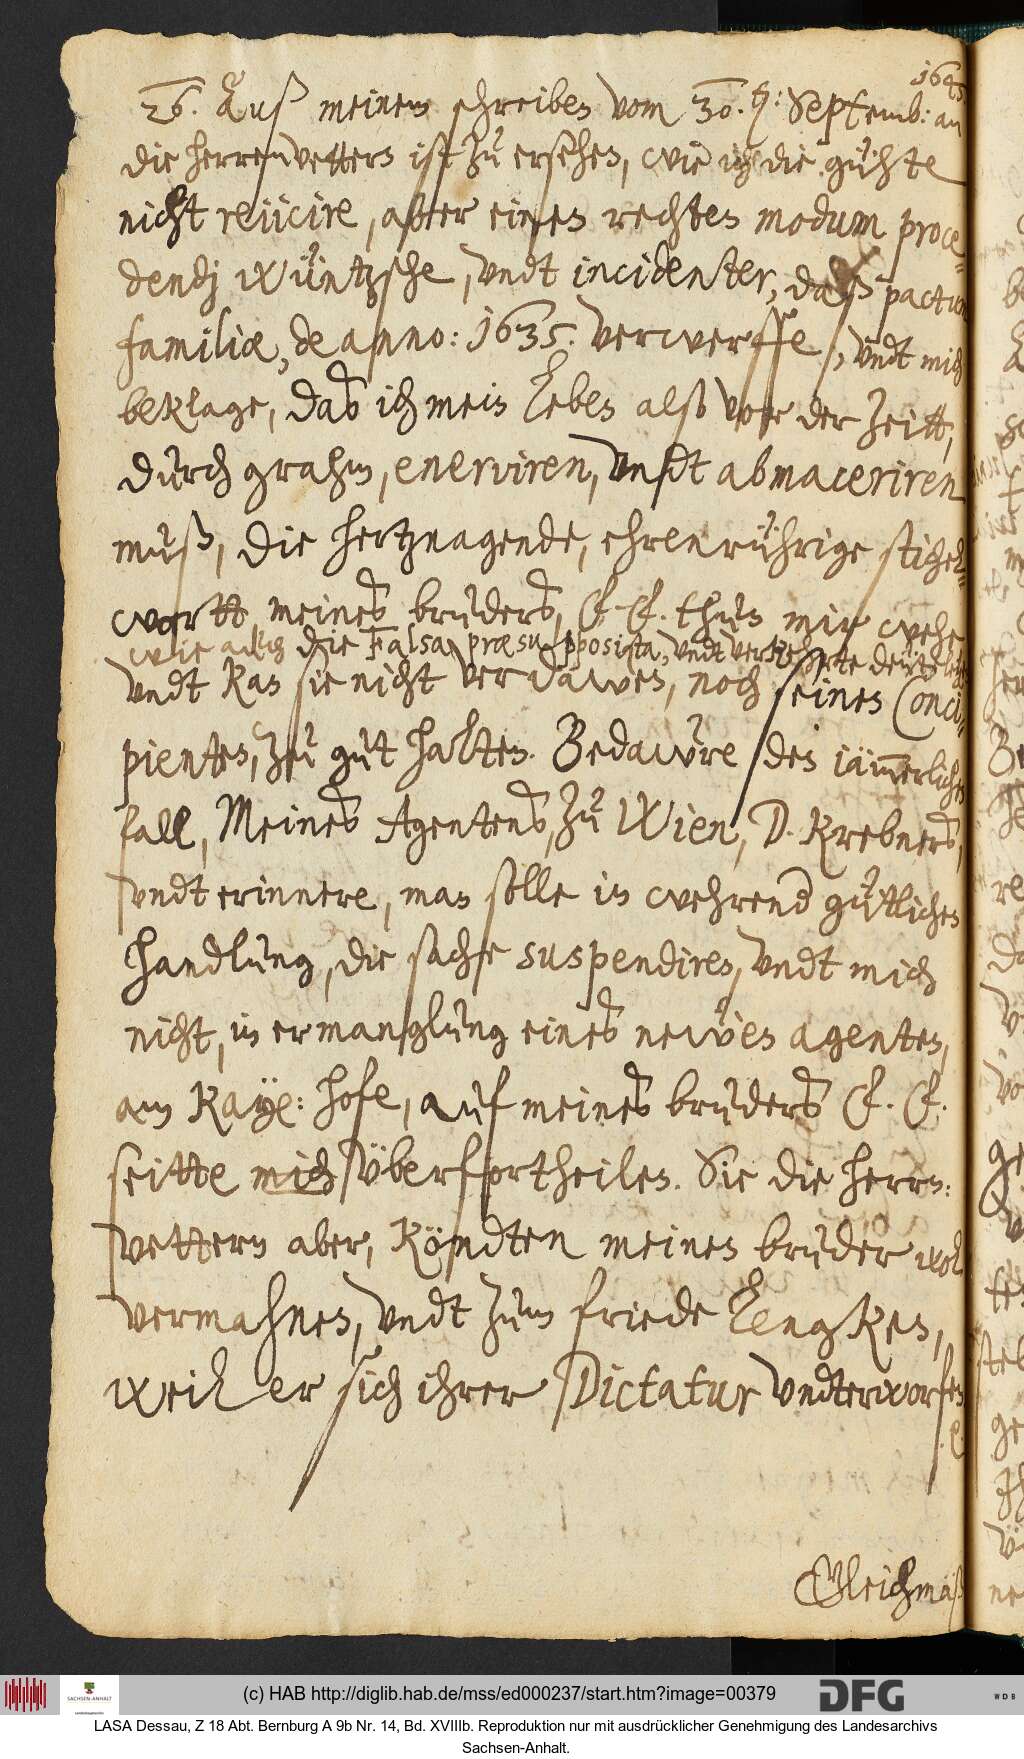 1645.
26. Auß meinem schreiben vom 30.ten: Septemb: an
die herrenvettern ist zu ersehen, wie ich die gühte
nicht reiicire, aber einen rechten modum proce-
dendj wüntzsche, undt incidenter, daß pactum
familiæ, de anno: 1635. verwerffe, undt mich
beklage, das ich mein Leben alß vor der Zeitt,
durch grahm, enerviren, undt abmaceriren
muß, die hertznagende, ehrenrührige stichel-
wortt, meines bruders, L. L. thun mir wehe
wie auch die Falsa præsupposita, undt verkehrte
undt kan sie nicht verdawen, noch seinen Conci-
pienten, zu gut halten. Bedawre den iämmerlichen
fall, Meines Agentens, zu Wien, D. Krebners,
undt erinnere, man solle in wehrend gütlicher
handlung, die sache suspendiren, undt mich
nicht, in ermanglung eines newen agenten,
am Kaye: hofe, auf meines bruders L. L.
seitte mich überfortheilen. Sie die herrn:
vettern aber, köndten meinen bruder wol
vermahnen, undt zum friede Lengken,
weil er sich ihrer Dictatur undterworfen
Gleichmäß
(c) HAB http://diglib.hab.de/mss/ed000237/start.htm?image=00379
SACHSEN-ANHALT
DFG
WDB
LASA Dessau, Z 18 Abt. Bernburg A 9b Nr. 14, Bd. XVIIIb. Reproduktion nur mit ausdrücklicher Genehmigung des Landesarchivs
Sachsen-Anhalt.